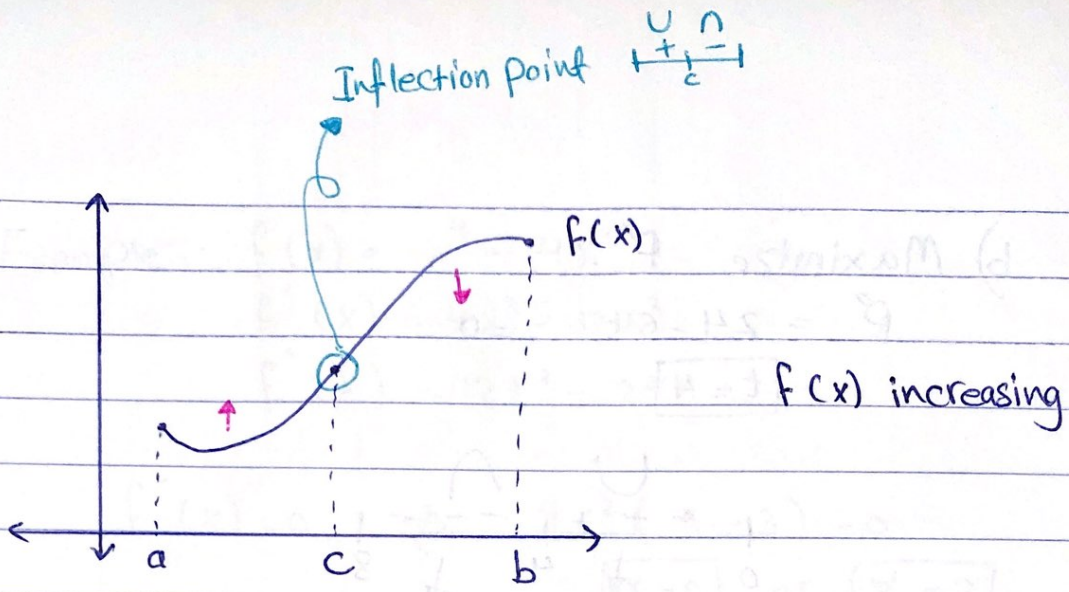 U ∩
Inflection Point + -
c
f(x)
f(x) increasing
a c b